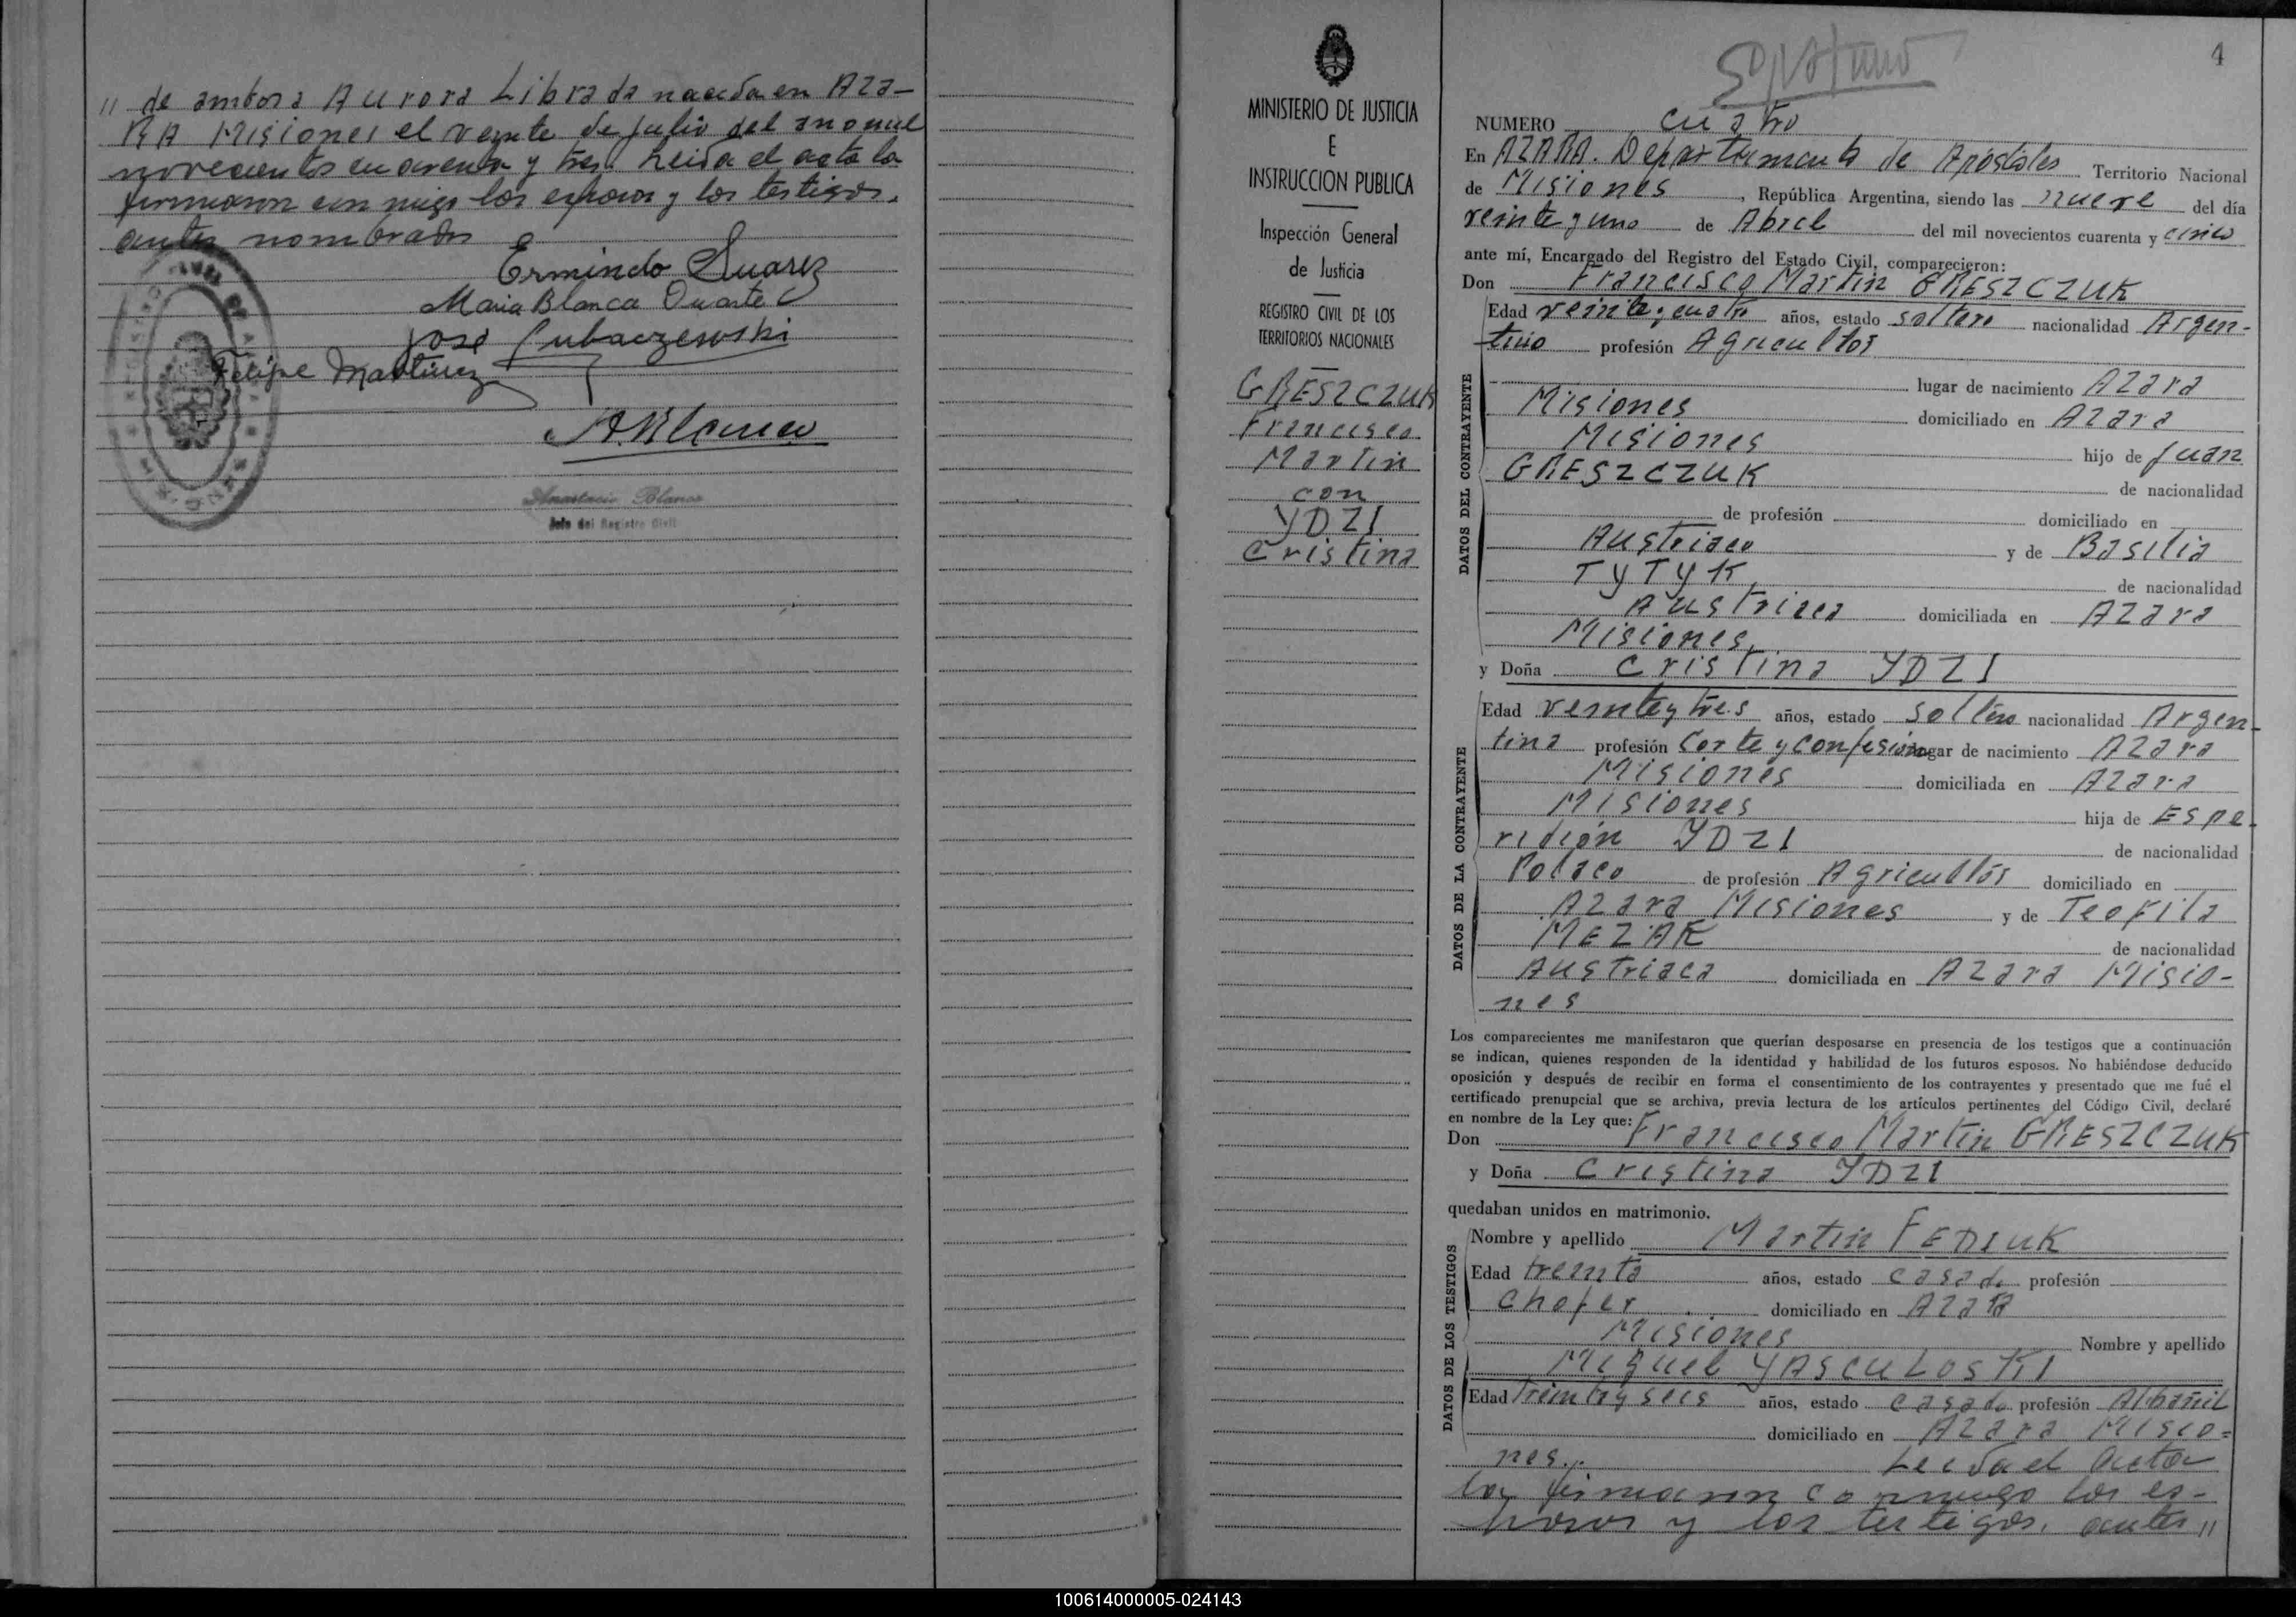 " de ambos: Aurora Librada nacida en Aza-
RA Misiones el veinte de Julio del año mil
novecientos cuarenta y tres. Leida el acta la
firmaron con migo los esposos y los testigos.
antes nombrados
Ermindo Suarez
Maria Blanca Duarte
José Lubaczewski
Felipe Martinez
A. Blanco
Anastacio Blanco
Jefe del Registro Civil
MINISTERIO DE JUSTICIA
E
INSTRUCCION PUBLICA
Inspección General
de Justicia
REGISTRO CIVIL DE LOS
TERRITORIOS NACIONALES
GRESZCZUK
Francisco
Martin
con
YDZI
Cristina
4
NUMERO cuatro
En AZARA. Departamento de Apóstoles Territorio Nacional
de Misiones, República Argentina, siendo las nueve del día
veinte y uno de Abril del mil novecientos cuarenta y cinco
ante mí, Encargado del Registro del Estado Civil, comparecieron:
Don Francisco Martin GRESZCZUK
DATOS DEL CONTRAYENTE
Edad veinte y cuatro años, estado soltero nacionalidad Argen-
tino profesión Agricultor
lugar de nacimiento Azara
Misiones domiciliado en Azara
Misiones hijo de Juan
GRESZCZUK de nacionalidad
de profesión domiciliado en
Austriaco y de Basilia
TYTYK, de nacionalidad
Austriaca domiciliada en Azara
Misiones,
y Doña Cristina YDZI
DATOS DE LA CONTRAYENTE
Edad veinte y tres años, estado Soltera nacionalidad Argen-
tina profesión Corte y confesión lugar de nacimiento Azara
Misiones domiciliada en Azara
Misiones hija de Espe-
ridión YDZI de nacionalidad
Polaco de profesión Agricultor domiciliado en
Azara Misiones y de Teofila
MEZAK de nacionalidad
Austriaca domiciliada en Azara Misio-
nes
Los comparecientes me manifestaron que querían desposarse en presencia de los testigos que a continuación
se indican, quienes responden de la identidad y habilidad de los futuros esposos. No habiéndose deducido
oposición y después de recibir en forma el consentimiento de los contrayentes y presentado que me fué el
certificado prenupcial que se archiva, previa lectura de los artículos pertinentes del Código Civil, declaré
en nombre de la Ley que:
Don Francisco Martin GRESZCZUK
y Doña Cristina YDZI
quedaban unidos en matrimonio.
DATOS DE LOS TESTIGOS
Nombre y apellido Martin FEDIUK
Edad treinta años, estado casado profesión
Chofer domiciliado en Azara
Misiones Nombre y apellido
Miguel YASCULOSKI
Edad treinta y seis años, estado casado profesión Albañil
domiciliado en Azara Misio=
nes. Leida el acta
la firmaron conmigo los es-
posos y los testigos. antes "
100614000005-024143